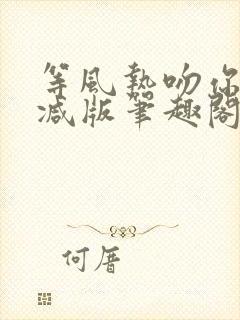 等風熱吻你
減版筆趣閣
何厝